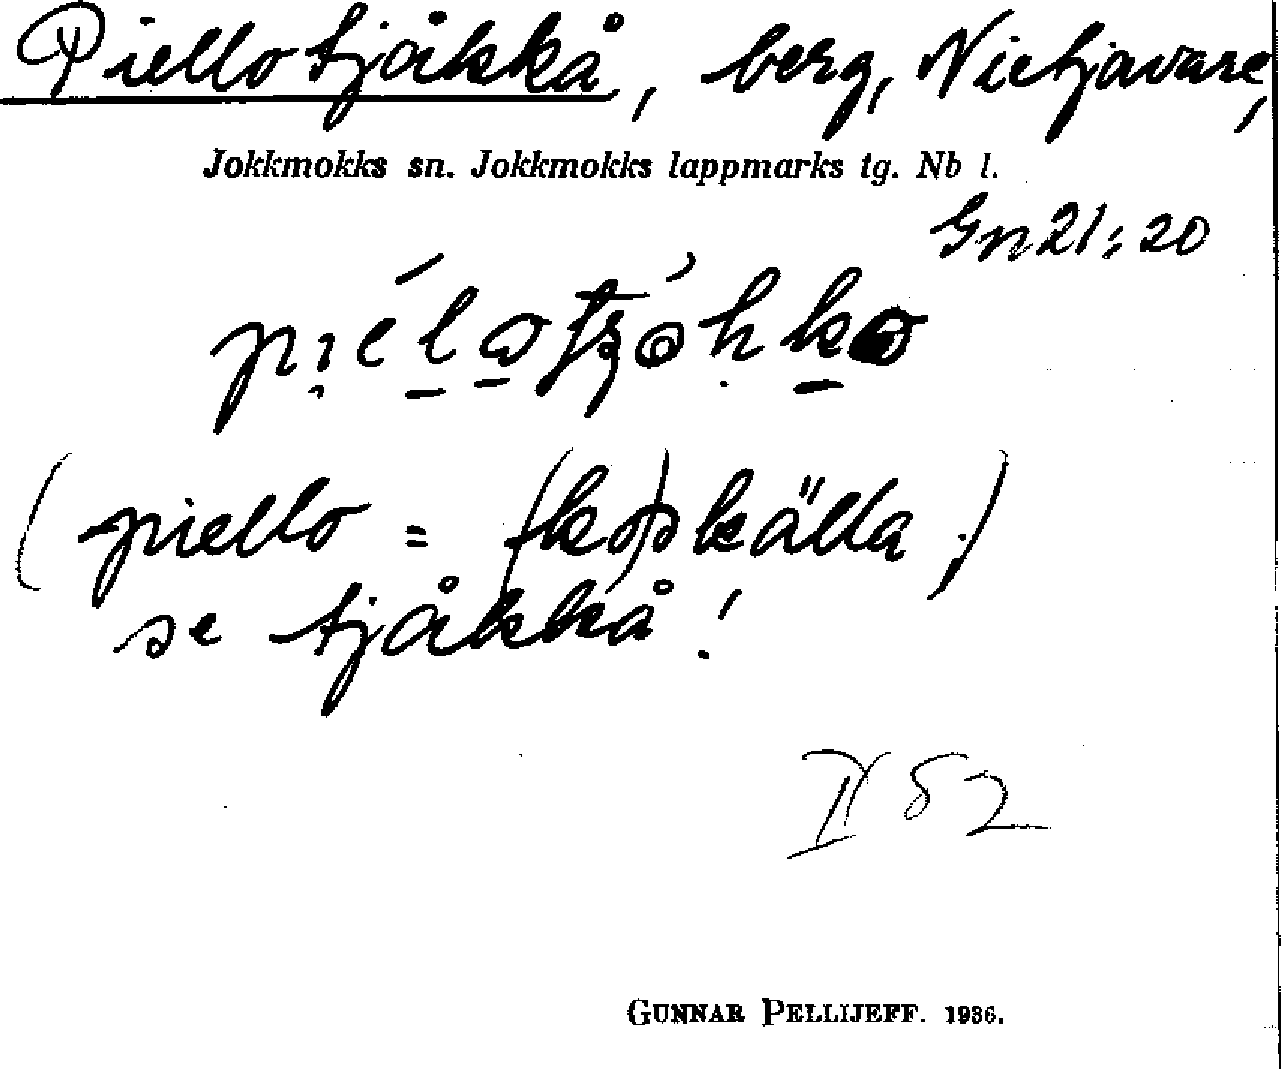 Piellotjåkkå, berg, Nietjavare,
Jokkmokks sn. Jokkmokks lappmarks tg. Nb l.
Gn 21:20
(piello = (ko)skälla.)
se tjåkkå!
IV 52
GUNNAR PELLIJEFF. 1936.